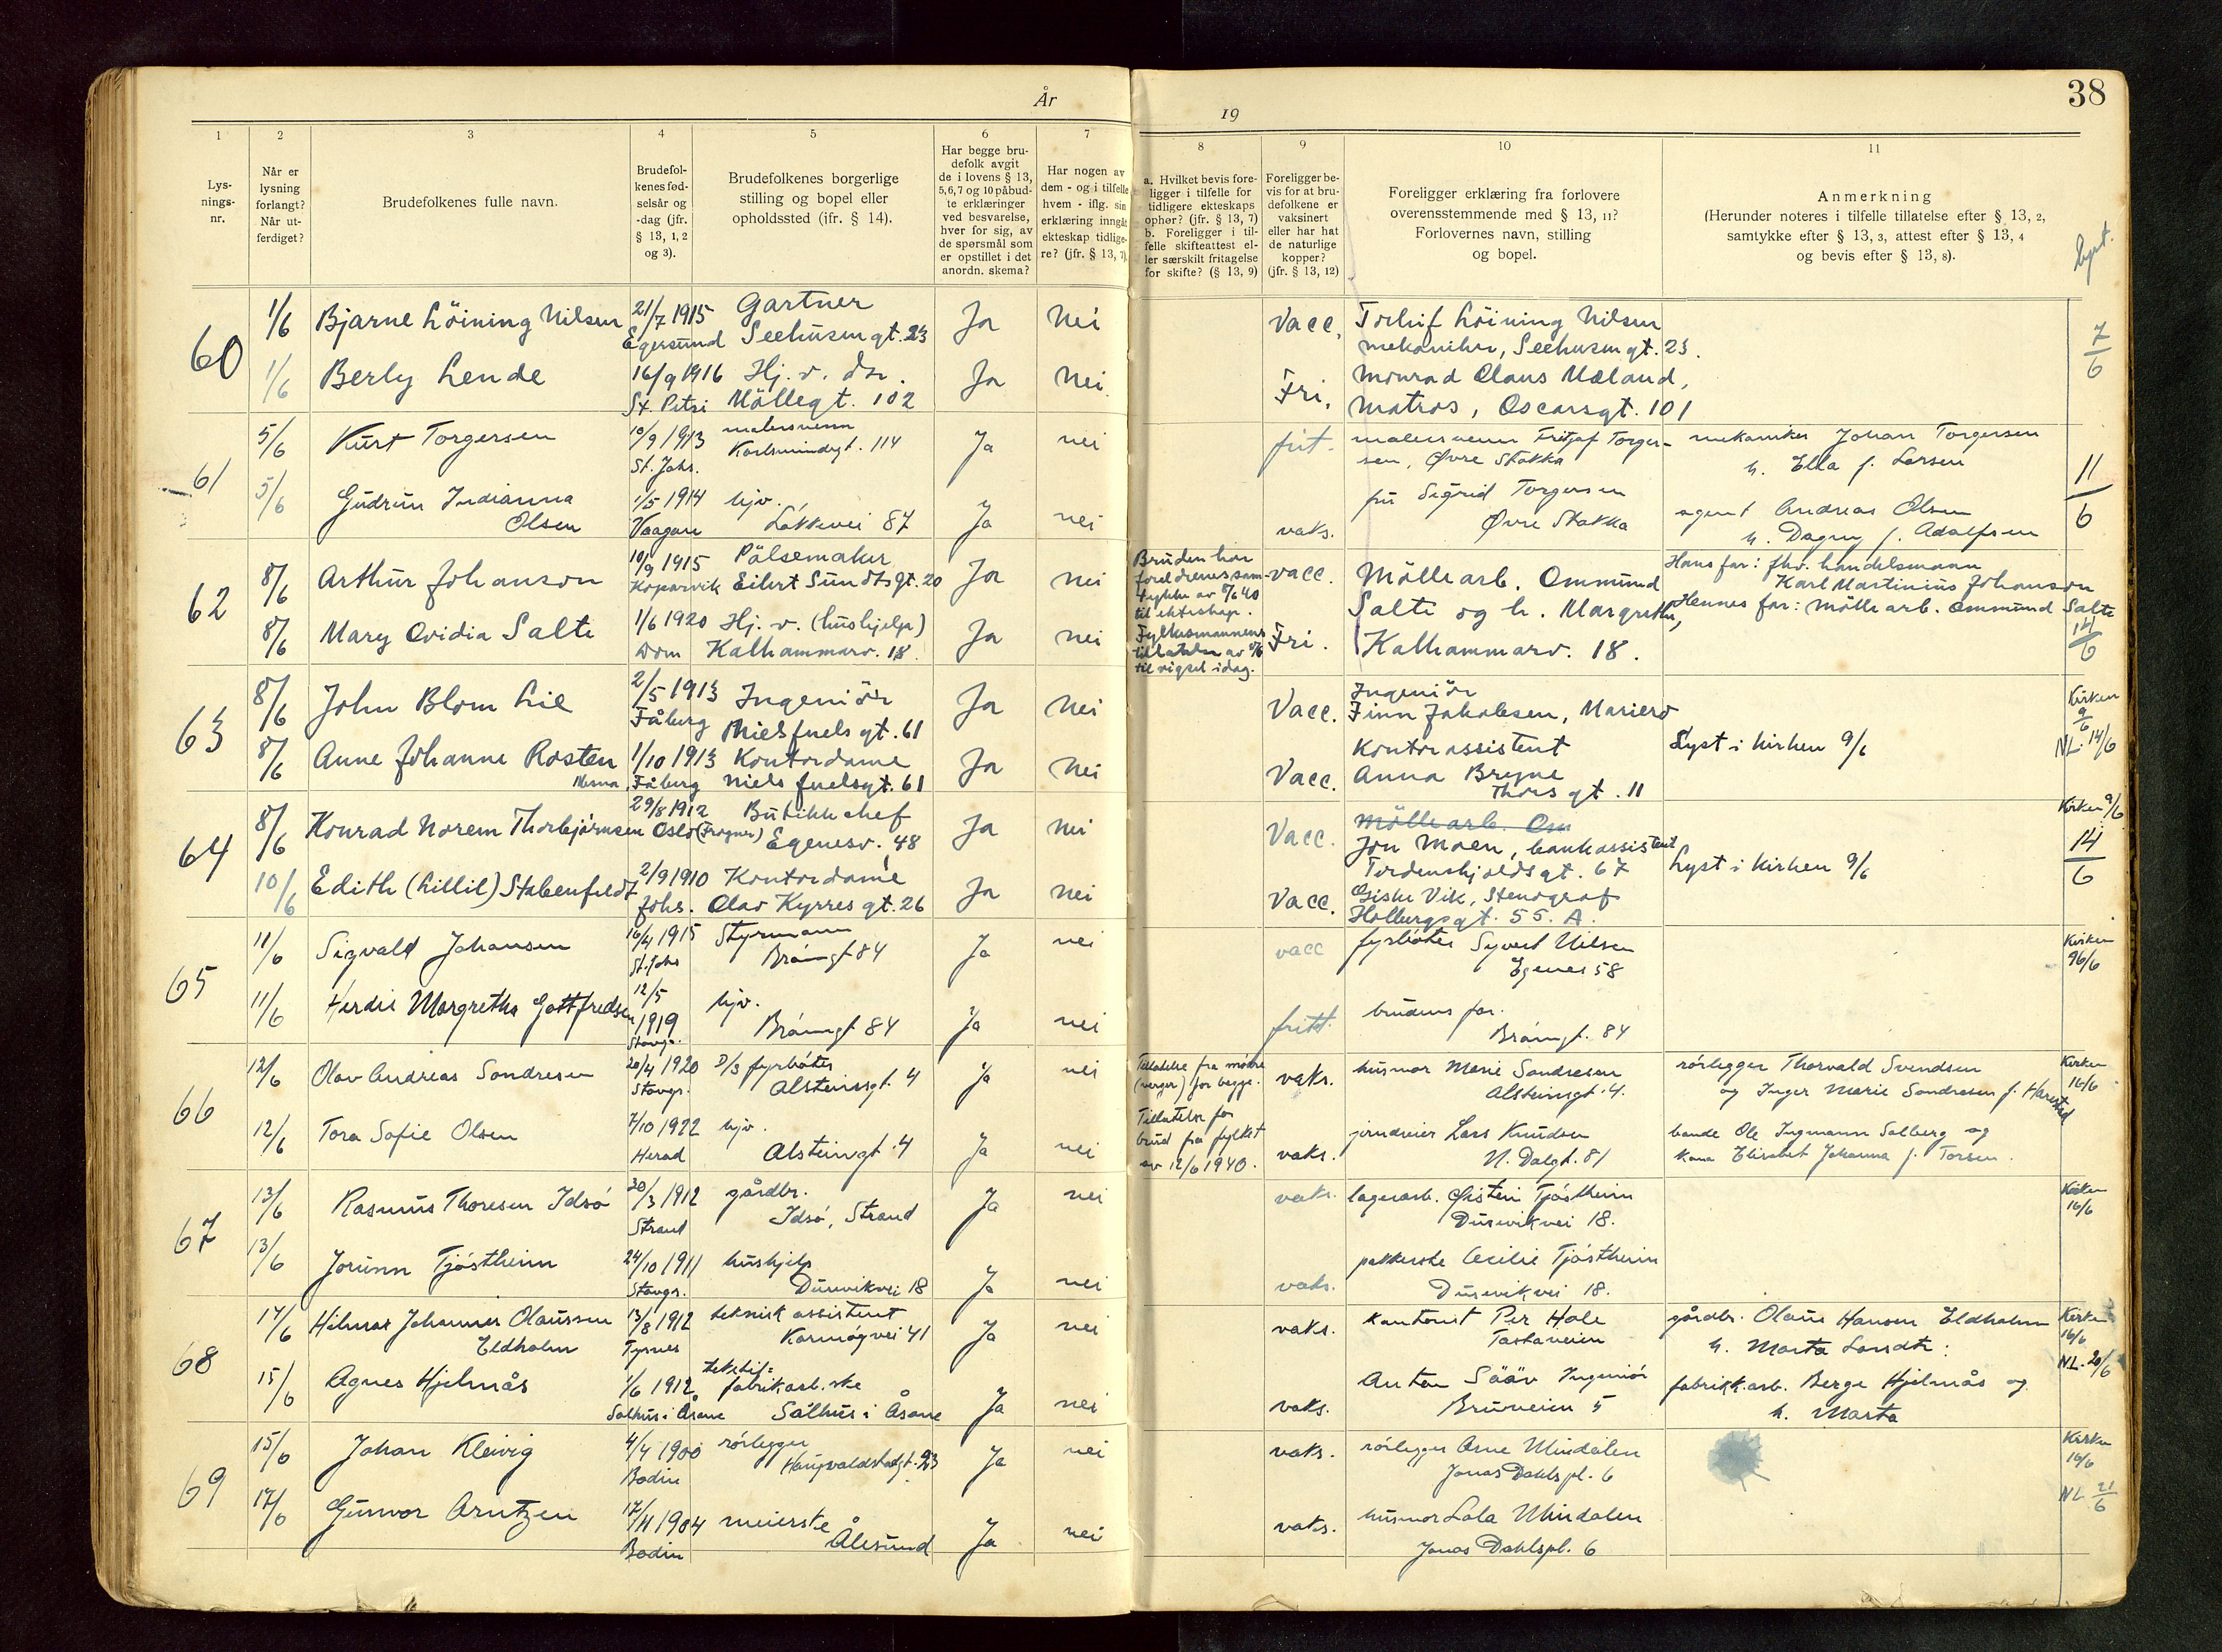 År
19
38
1
2
3
4
5
6
7
8
9
10
11
Lys-
nings-
nr.
Når er
lysning
forlangt?
Når ut-
ferdiget?
Brudefolkenes fulle navn.
Brudefol-
kenes fød-
selsår og
-dag (jfr.
§ 13, 1, 2
og 3).
Brudefolkenes borgerlige
stilling og bopel eller
opholdssted (jfr. § 14).
Har begge bru-
defolk avgit
de i lovens § 13,
5,6,7 og 10 påbud-
te erklæringer
ved besvarelse,
hver for sig, av
de spørsmål som
er opstillet i det
anordn. skema?
Har nogen av
dem - og i tilfelle
hvem - iflg. sin
erklæring inngåt
ekteskap tidlige-
re? (jfr. § 13, 7)
a. Hvilket bevis fore-
ligger i tilfelle for
tidligere ekteskaps
ophør? (jfr. § 13, 7)
b. Foreligger i til-
felle skifteattest el-
ler særskilt fritagelse
for skifte? (§ 13, 9)
Foreligger be-
vis for at bru-
defolkene er
vaksinert
eller har hat
de naturlige
kopper?
(jfr. § 13, 12)
Foreligger erklæring fra forlovere
overensstemmende med § 13, 11?
Forlovernes navn, stilling
og bopel.
Anmerkning
(Herunder noteres i tilfelle tillatelse efter § 13, 2,
samtykke efter § 13, 3, attest efter § 13, 4
og bevis efter § 13, 8).
lyst.
60
1/6 Bjarne Løining Nilsen 21/7 1915 Gartner Ja Nei Vacc. Torleif Løining Nilsen
Egersund Seehusengt. 23 mekaniker, Seehusengt. 23.
7/6
1/6 Berly Lende 16/9 1916 Hj. v. dr. Ja Nei. Fri. Monrad Claus Mæland,
St. Petri Møllegt. 102 Matros, Oscarsgt. 101
61
5/6 Kurt Torgersen 10/9 1913 malersvenn Ja nei frit. malersvenn Fritjof Torger- mekaniker Johan Torgersen
St. Johs. Karlsminnegt. 114 sen, Øvre Stokka h. Ella f. Larsen
11/6
5/6 Gudrun Indianna 1/5 1914 hjv. Ja nei vaks. fru Sigrid Torgersen agent Andreas Olsen
Olsen Vaagan Løkkevei 87 Øvre Stokka h. Dagny f. Adolfsen
62
8/6 Arthur Johanson 10/9 1915 Pølsemaker Ja nei Bruden har vacc. Møllearb. Ommund Hans far: fhv. handelsmann
Kopervik Eilert Sundtsgt. 20 foreldrenes sam- Salte og h. Margrethe, Karl Martinius Johanson
tykke av 8/6 40
til ekteskap.
8/6 Mary Ovidia Salte 1/6 1920 Hj. v. (hushjelp) Ja nei Fylkesmannens Fri. Kalhammarv. 18. Hennes far: Møllearb. Ommund Salte
Dom Kalhammarv. 18. tillatelse av 8/6
til vigsel idag.
14/6
63
8/6 John Blom Lie 2/5 1913 Ingeniør Ja Nei Vacc. Ingeniør
Fåberg Nielsjuelsgt. 61 Finn Jakobsen, Mariero
Kirken 9/6
NL. 14/6
8/6 Anne Johanne Rosten 1/10 1913 Kontordame Ja Nei Vacc. Kontorassistent Lyst i kirken 9/6
Fåberg Niels juelsgt. 61 Anna Bryne
Thorsgt. 11
64
8/6 Konrad Norem Thorbjørnsen 29/8 1912 Butikkchef Ja Nei Vacc. Møllearb. Om
Oslo (Frogner) Egenesv. 48 Jon Moen, bankassistent
Tordenskjoldsgt. 67 Lyst i kirken 9/6
Kirken 9/6
14/6
10/6 Edith (Lillil) Stabenfeldt 2/9 1910 Kontordame Ja Nei Vacc. Giske Vik, Stenograf
Johs. Olav Kyrresgt. 26 Holbergsgt. 55. A.
65
11/6 Sigvald Johansen 16/4 1915 Styrmann Ja nei vacc fyrbøter Syvert Nilsen
St. Johs 84 Egenes 58
Kirken
11/6 Herdie Margrethe Gottfredsen 12/5 1919 hjv. Ja nei fritt. brudens far.
Stavgr. 84 84
66
12/6 Olav Andreas Sondresen 20/4 1920 D/S fyrbøter Ja nei Tillatelse fra mødre vaks. husmor Marie Sondresen rørlegger Thorvald Svendsen
Stavgr. Alsteinsgt. 4 (verger) for begge. Alsteinsgt. 4. og Inger Marie Sondresen f. Harestad
Kirken 16/6
12/6 Tora Sofie Olsen 7/10 1922 hjv. Ja nei Tillatelse for vaks. jerndreier Lars Knudsen Ole Ingmann Solberg og
Herad Alsteingt. 4 brud fra fylket N. Dalgt. 81 kona Elisabet Johanna f. Torsen.
av 12/6 1940.
67
13/6 Rasmus Thoresen Idsø 30/3 1912 gårdbr. Ja nei vaks. lagerarb. Øistein Tjøstheim
Strand Idsø, Strand Dusevikvei 18.
Kirken 16/6
13/6 Jorunn Tjøstheim 24/10 1911 hushjelp Ja nei vaks. pakkerske Cecilie Tjøstheim
Stavgr. Dusevikvei 18 Dusevikvei 18.
68
14/6 Hilmar Johannes Olaussen 13/8 1912 teknisk assistent Ja nei vaks. kantonist Per Hole gårdbr. Olaus Hansen Eldholm
Eldholm Tysnes Karmøyvei 41 Tastaveien h. Marta
Kirken 16/6
NL. 20/6
15/6 Agnes Hjelmås 1/6 1912 tekstil= Ja nei vaks. Anton Sääv Ingeniør fabrikkarb. Berge Hjelmås og
fabrikarb.ske
Salhus i Åsane Salhus i Åsane Bruveien 5 h. Marta
69
15/6 Johan Kleivig 4/4 1900 rørlegger Ja nei vaks. rørlegger Arne Mindalen
Bodin Haugvaldstadgt. 23 Jonas Dahlspl. 6
Kirken 16/6
NL 21/6
17/6 Gunvor Arntzen 17/11 1904 meierske Ja nei vaks. husmor Lola Mindalen
Bodin Ålesund Jonas Dahlspl. 6